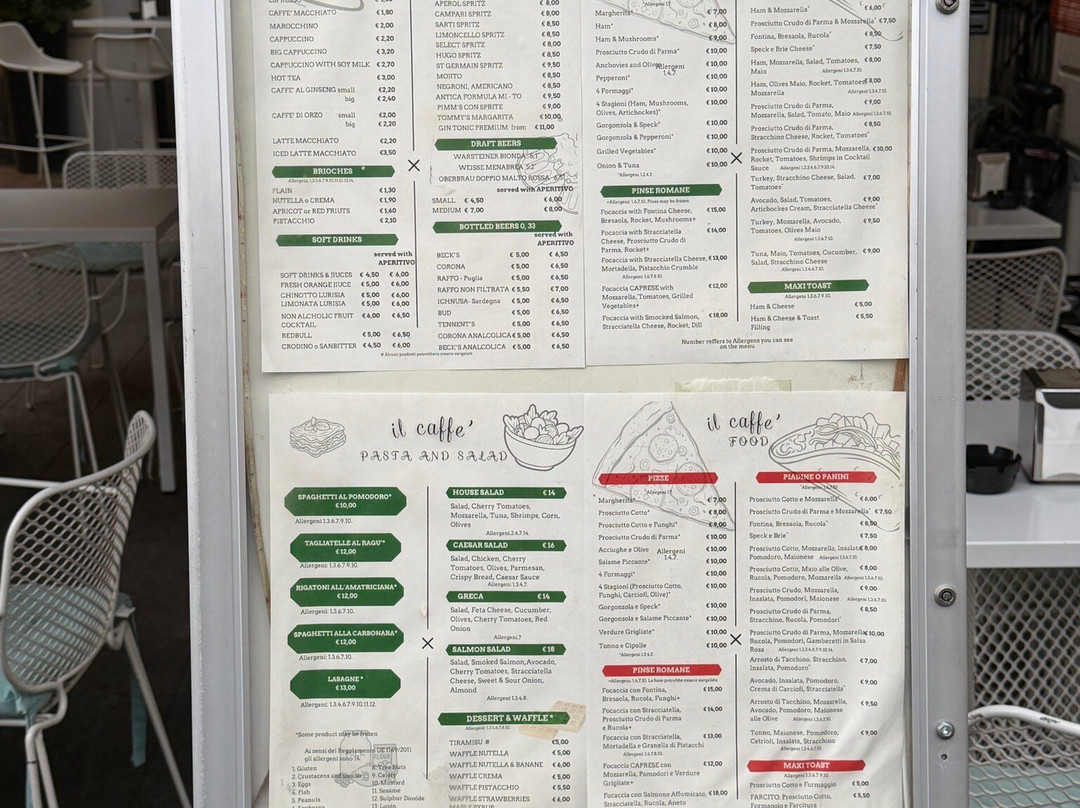 CAFFE' MACCHIATO € 1,90
MAROCCHINO € 2,00
CAPPUCCINO € 2,20
BIG CAPPUCCINO € 3,20
CAPPUCCINO WITH SOY MILK € 2,70
HOT TEA € 3,00
CAFFE' AL GINSENG small €2,20
big € 2,40
CAFFE' DI ORZO small €2,00
big € 2,20
LATTE MACCHIATO €2,20
ICED LATTE MACCHIATO €3,50
BRIOCHES
PLAIN €1,30
NUTELLA o CREMA €1,90
APRICOT or RED FRIUTS €1,60
PISTACCHIO € 2,10
SOFT DRINKS
served with
APERITIVO
SOFT DRINKS & JIUCES € 4,50 € 6,00
FRESH ORANGE JIUCE € 5,00 € 6,00
CHINOTTO LURISIA € 5,00 € 6,00
LIMONATA LURISIA € 5,00 € 6,00
NON ALCHOLIC FRUIT € 6,00 € 6,50
COCKTAIL
REDBULL € 5,00 € 6,50
CRODINO o SANBITTER € 4,50 € 6,00
APEROL SPRITZ € 8,00
CAMPARI SPRITZ € 8,00
SARTI SPRITZ € 8,50
LIMONCELLO SPRITZ € 8,50
SELECT SPRITZ € 8,00
HUGO SPRITZ € 8,50
ST GERMAIN SPRITZ € 9,50
MOJITO € 8,50
NEGRONI, AMERICANO € 8,50
ANTICA FORMULA MI - TO € 9,50
PIMM'S CON SPRITE € 9,00
TOMMY'S MARGARITA € 10,00
GIN TONIC PREMIUM from € 11,00
DRAFT BEERS
WARSTEINER BIONDA 5.1
WEISSE MENABREA 5.2
OBERBRAU DOPPIO MALTO ROSSA
served with APERITIVO
SMALL € 4,50 € 6,00
MEDIUM € 7,00 € 8,00
BOTTLED BEERS 0, 33
served with
APERITIVO
BECK'S € 5,00 € 6,50
CORONA € 5,00 € 6,50
RAFFO - Puglia € 5,00 € 6,50
RAFFO NON FILTRATA € 5,50 € 7,00
ICHNUSA- Sardegna € 5,00 € 6,50
BUD € 5,00 € 6,50
TENNENT'S € 5,00 € 6,50
CORONA ANALCOLICA € 5,00 € 6,50
BECK'S ANALCOLICA € 5,00 € 6,50
# Alcuni prodotti potrebbero essere surgelati
Margherita* € 7,00
Ham* € 8,00
Ham & Mushrooms* € 9,00
Prosciutto Crudo di Parma* € 10,00
Anchovies and Olives € 10,00
Allergeni
1.4.7.
Pepperoni* € 10,00
4 Formaggi* € 10,00
4 Stagioni (Ham, Mushrooms, € 10,00
Olives, Artichokes)*
Gorgonzola & Speck* € 10,00
Gorgonzola & Pepperoni* € 10,00
Grilled Vegetables* € 10,00
Onion & Tuna € 10,00
*Allergeni 1.2.4.7.
PINSE ROMANE
Focaccia with Fontina Cheese, € 15,00
Bresaola, Rocket, Mushrooms+
Focaccia with Stracciatella € 14,00
Cheese, Prosciutto Crudo di
Parma, Rocket+
Focaccia with Stracciatella Cheese, € 13,00
Mortadella, Pistacchio Crumble
Focaccia CAPRESE with € 12,00
Mozzarella, Tomatoes, Grilled
Vegetables+
Focaccia with Smocked Salmon, € 18,00
Stracciatella Cheese, Rocket, Dill
Ham & Mozzarella* € 6,00
Prosciutto Crudo di Parma & Mozzarella* € 7,50
Fontina, Bresaola, Rucola* € 8,50
Speck e Brie Cheese* € 7,50
Ham, Mozzarella, Salad, Tomatoes, € 8,00
Maio Allergeni 1.3.6.7.10.
Ham, Olives Maio, Rocket, Tomatoes, € 8,00
Mozzarella
Prosciutto Crudo di Parma, € 9,00
Mozzarella, Salad, Tomato, Maio
Prosciutto Crudo di Parma, € 8,50
Stracchino Cheese, Rocket, Tomatoes*
Prosciutto Crudo di Parma, Mozzarella, € 10,00
Rocket, Tomatoes, Shrimps in Cocktail
Sauce
Turkey, Stracchino Cheese, Salad, € 7,00
Tomatoes*
Avocado, Salad, Tomatoes, € 9,00
Artichockes Cream, Stracciatella Cheese*
Turkey, Mozzarella, Avocado, € 9,50
Tomatoes, Olives Maio
Allergeni 1.3.6.7.
Tuna, Maio, Tomatoes, Cucumber, € 9,00
Salad, Stracchino Cheese
MAXI TOAST
Ham & Cheese € 5,00
Ham & Cheese & Toast € 5,50
Filling
Number reffers to Allergens you can see
on the menu
il caffe'
PASTA AND SALAD
SPAGHETTI AL POMODORO*
€ 10,00
Allergeni 1.3.6.7.9.10.
TAGLIATELLE AL RAGU'*
€ 12,00
Allergeni: 1.3.6.7.9.10.
RIGATONI ALL'AMATRICIANA*
€ 12,00
Allergeni: 1.3.6.7.10.
SPAGHETTI ALLA CARBONARA*
€ 12,00
Allergeni: 1.3.6.7.10.
LASAGNE*
€ 13,00
Allergeni: 1.3.4.6.7.9.10.11.12.
*Some product may be frozen
Ai sensi del Regolamento UE 1169/2011
gli allergeni sono 14:
1. Gluten
2. Crustaceans and similar
3. Eggs
4. Fish
5. Peanuts
8. Tree Nuts
9. Celery
10. Mustard
11. Sesame
12. Sulphur Dioxide
13. Lupin
HOUSE SALAD € 14
Salad, Cherry Tomatoes,
Mozzarella, Tuna, Shrimps, Corn,
Olives
Allergeni 2.4.7.14.
CAESAR SALAD € 16
Salad, Chicken, Cherry
Tomatoes, Olives, Parmesan,
Crispy Bread, Caesar Sauce
Allergeni 1.3.4.7.
GRECA € 14
Salad, Feta Cheese, Cucumber,
Olives, Cherry Tomatoes, Red
Onion
Allergeni.7
SALMON SALAD € 18
Salad, Smoked Salmon, Avocado,
Cherry Tomatoes, Stracciatella
Cheese, Sweet & Sour Onion,
Almond
Allergeni 1.3.4.8.
DESSERT & WAFFLE *
TIRAMISU # €5,00
WAFFLE NUTELLA € 5,00
WAFFLE NUTELLA & BANANE € 6,00
WAFFLE CREMA € 5,00
WAFFLE PISTACCHIO € 5,50
WAFFLE STRAWBERRIES € 6,00
il caffe'
FOOD
PIZZE
*Allergeni 1.7.
Margherita* € 7,00
Prosciutto Cotto* € 8,00
Prosciutto Cotto e Funghi* € 9,00
Prosciutto Crudo di Parma* € 10,00
Acciughe e Olive € 10,00
Allergeni
1.4.7.
Salame Piccante* € 10,00
4 Formaggi* € 10,00
4 Stagioni (Prosciutto Cotto, € 10,00
Funghi, Carciofi, Olive)*
Gorgonzola e Speck* € 10,00
Gorgonzola e Salame Piccante* € 10,00
Verdure Grigliate* € 10,00
Tonno e Cipolle € 10,00
*Allergeni 1.2.4.7.
PINSE ROMANE
*Allergeni 1.6.7.10. La base potrebbe essere surgelata
Focaccia con Fontina, € 15,00
Bresaola, Rucola, Funghi+
Focaccia con Stracciatella, € 14,00
Prosciutto Crudo di Parma
e Rucola+
Focaccia con Stracciatella, € 13,00
Mortadella e Granella di Pistacchi
Allergeni 1.6.7.8.10.
Focaccia CAPRESE con € 12,00
Mozzarella, Pomodori e Verdure
Grigliate+
Focaccia con Salmone Affumicato, € 18,00
Stracciatella, Rucola, Aneto
PIADINE O PANINI
Prosciutto Cotto e Mozzarella* € 6,00
Prosciutto Crudo di Parma e Mozzarella* € 7,50
Fontina, Bresaola, Rucola* € 8,50
Speck e Brie* € 7,50
Prosciutto Cotto, Mozzarella, Insalata, € 8,00
Pomodoro, Maionese Allergeni 1.3.6.7.10.
Prosciutto Cotto, Maio alle Olive, € 8,00
Rucola, Pomodoro, Mozzarella Allergeni 1.3.6.7.10.
Prosciutto Crudo, Mozzarella, € 9,00
Insalata, Pomodori, Maionese Allergeni 1.3.6.7.10.
Prosciutto Crudo di Parma, € 8,50
Stracchino, Rucola, Pomodori*
Prosciutto Crudo di Parma, Mozzarella, € 10,00
Rucola, Pomodori, Gamberatti in Salsa
Rosa
Arrosto di Tacchino, Stracchino, € 7,00
Insalata, Pomodoro*
Avocado, Insalata, Pomodoro, € 9,00
Crema di Carciofi, Stracciatella*
Arrosto di Tacchino, Mozzarella, € 9,50
Avocado, Pomodoro, Maionese
alle Olive Allergeni 1.3.6.7.
Tonno, Maionese, Pomodoro, € 9,00
Cetrioli, Insalata, Stracchino
MAXI TOAST
Prosciutto Cotto e Formaggio € 5,00
FARCITO: Prosciutto Cotto, € 5,50
Formaggio e Farciture